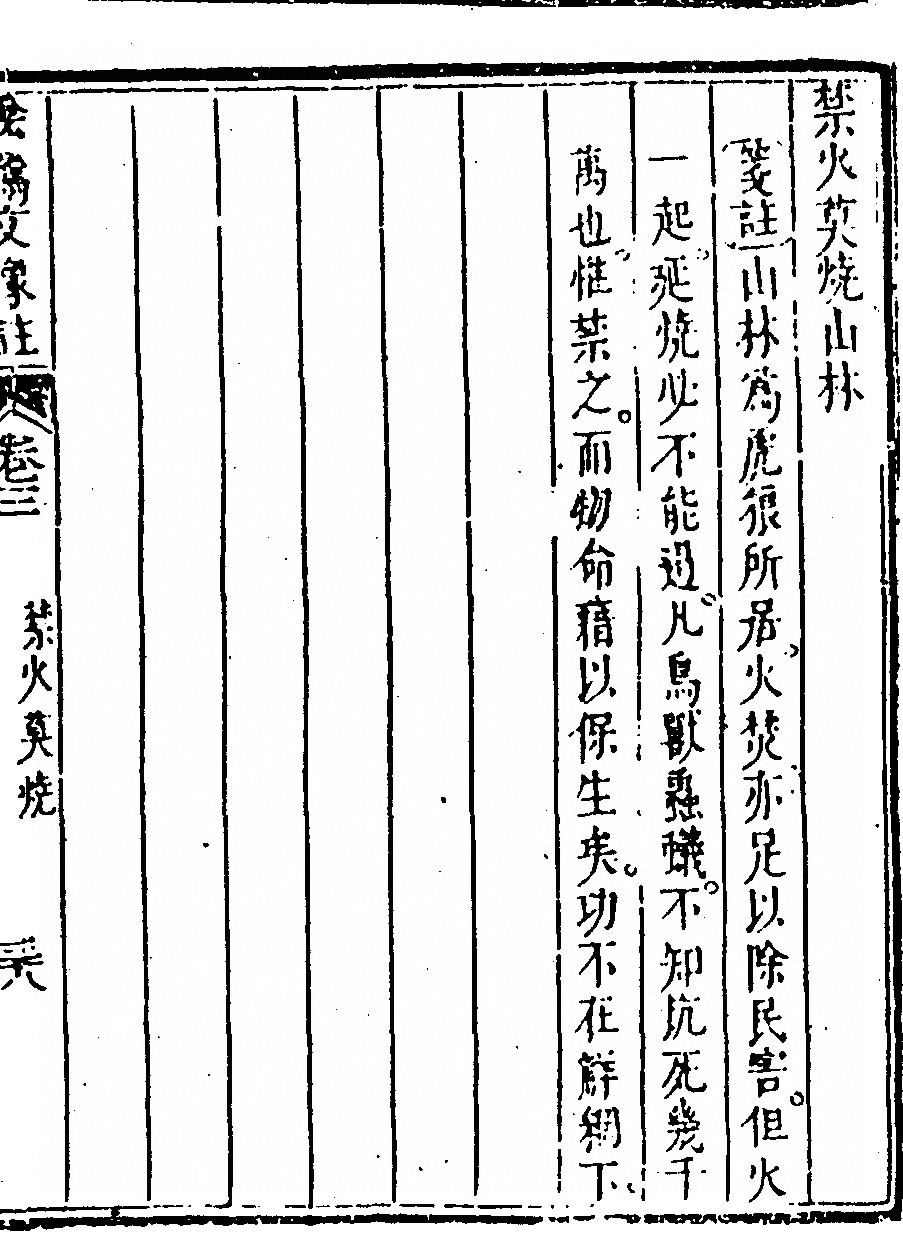 禁火莫燒山林
箋註山林為虎狼所居火焚亦足以除民害。但火
一起。延燒必不能遏。凡鳥獸蟲蟻。不知坑死幾千
萬也。惟禁之。而物命藉以保生矣。功不在解網下。
陰騭文像註 卷三 禁火莫燒